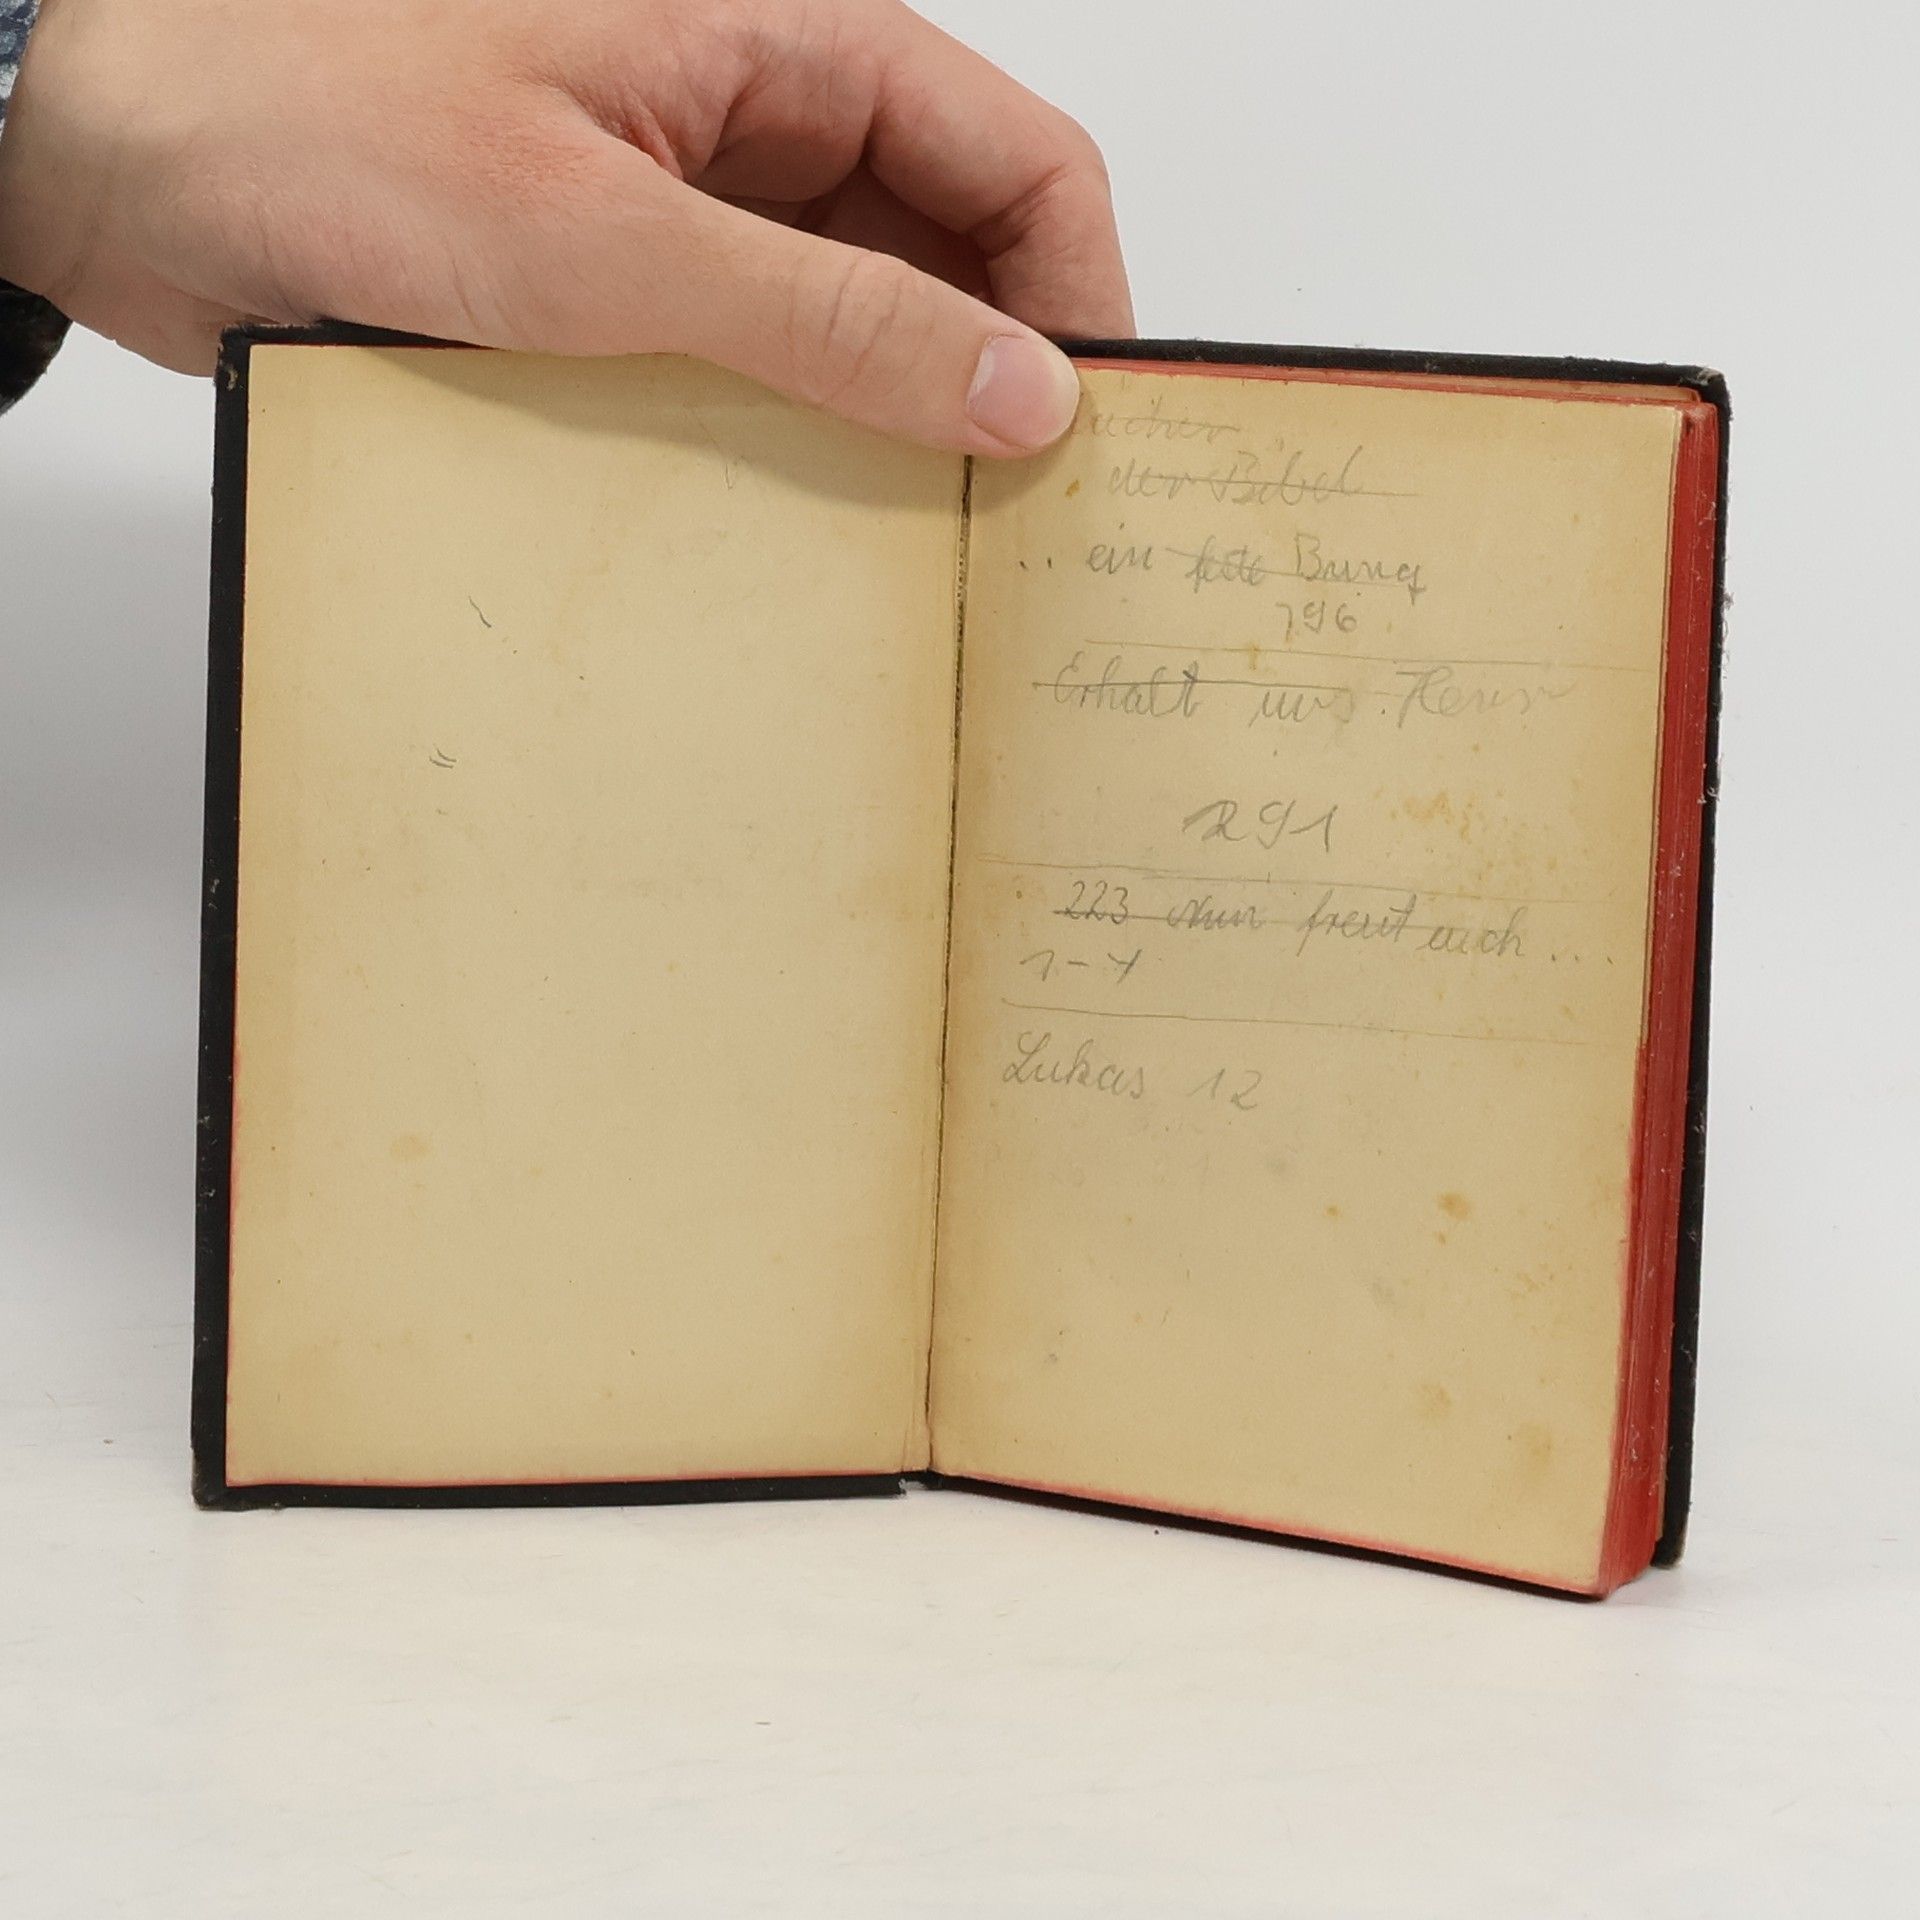 der Bibel
.. ein feste Burg
196
Erhalt uns Herr
291
223 Nun freut euch ...
1-4
Lukas 12